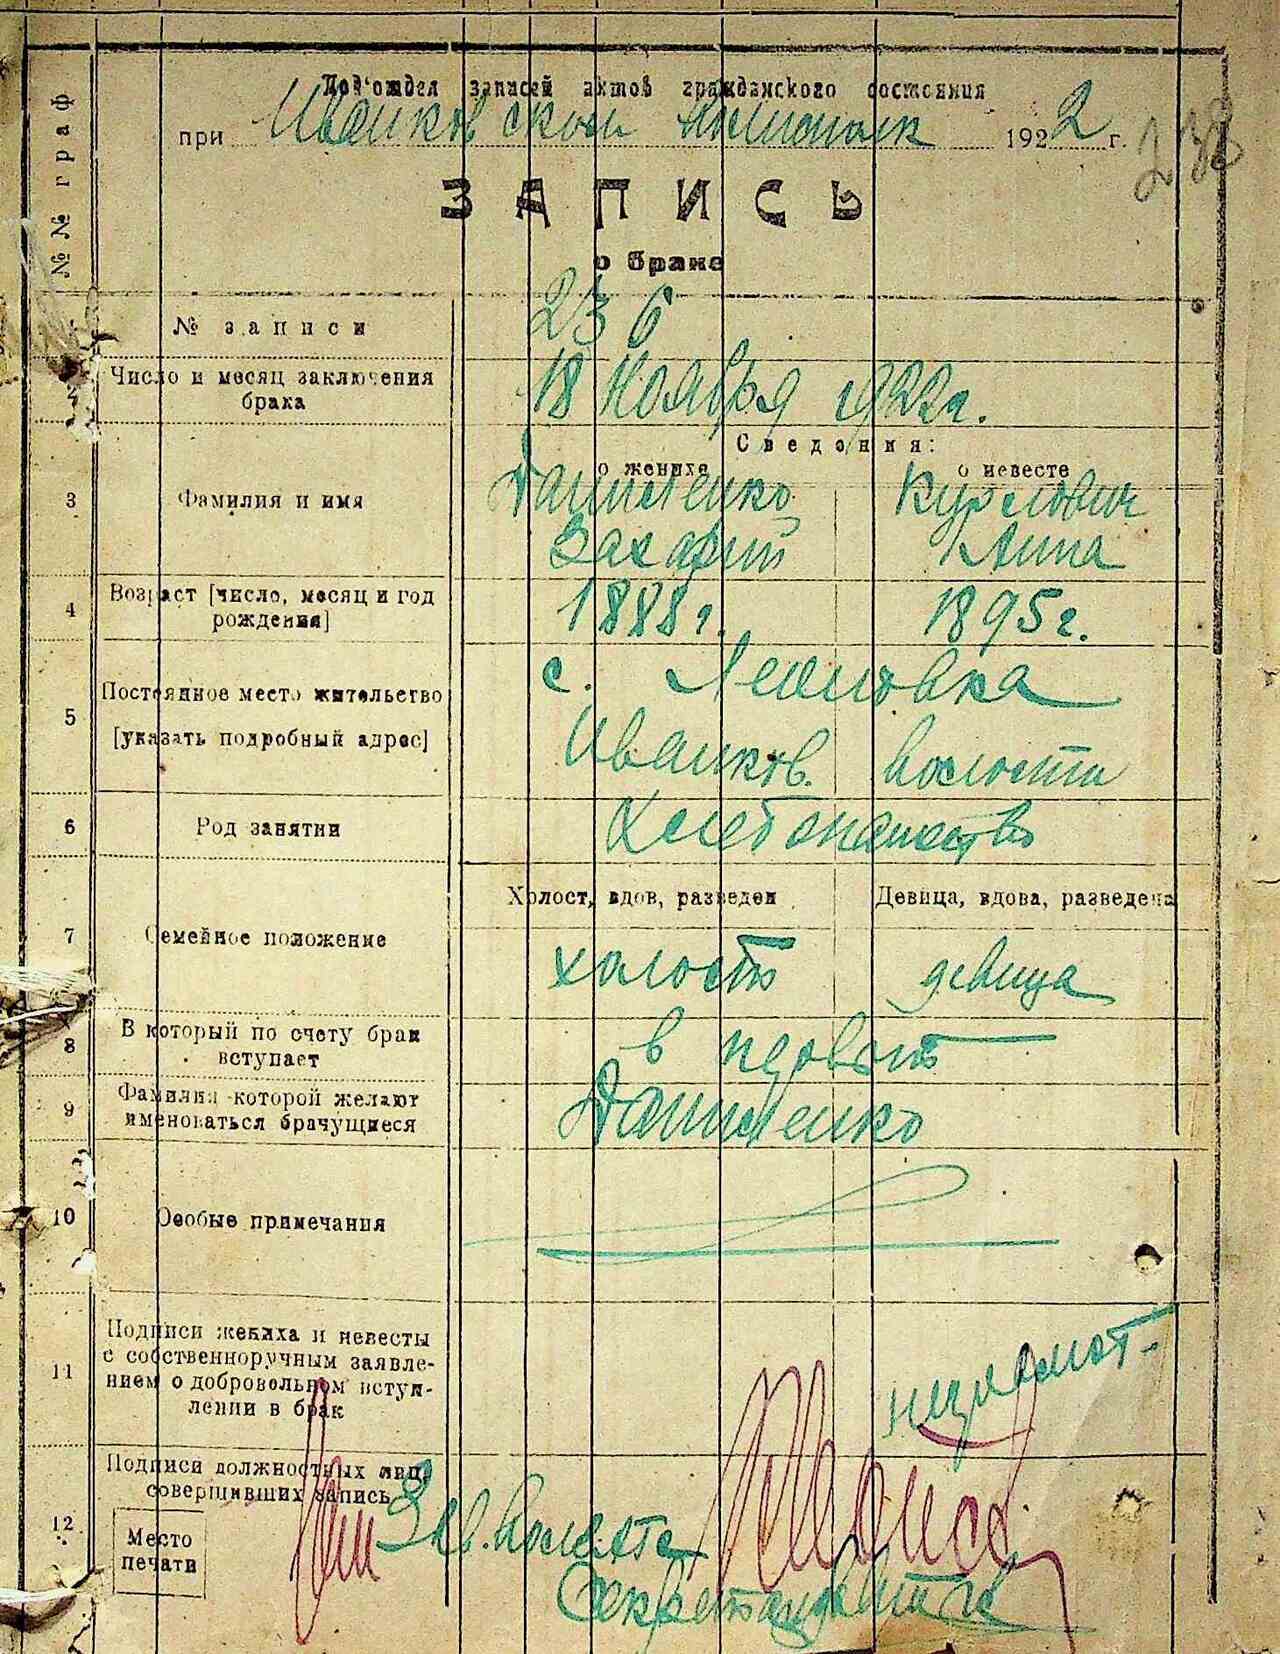 №№ граф
Под'отдел записей актов гражданского состояния
при Иванковском 1922 г.
238
ЗАПИСЬ
о браке
№ записи 236
Число и месяц заключения брака 18 Ноября 1922г.
Сведения:
о женихе о невесте
3 Фамилия и имя Даниленко Курлович
Захарий Анна
4 Возраст [число, месяц и год рождения] 1888г. 1895г.
5 Постоянное место жительство с. Леоновка
[указать подробный адрес] Иванков. волости
6 Род занятии Хлебопашество
Холост, вдов, разведен Девица, вдова, разведена
7 Семейное положение холост девица
8 В который по счету брак вступает в первый
9 Фамилия которой желают именоваться брачущиеся Даниленко
10 Особые примечания
11 Подписи жениха и невесты с собственноручным заявле-
нием о добровольном вступ-
лении в брак неграмот-
Подписи должностных лиц, совершивших запись
12 Место печати Зав.
Секретарь